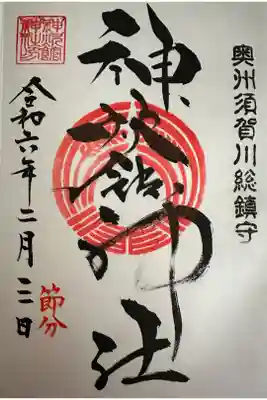 奥州須賀川総鎮守
神炊館神社
令和六年二月三日
節分